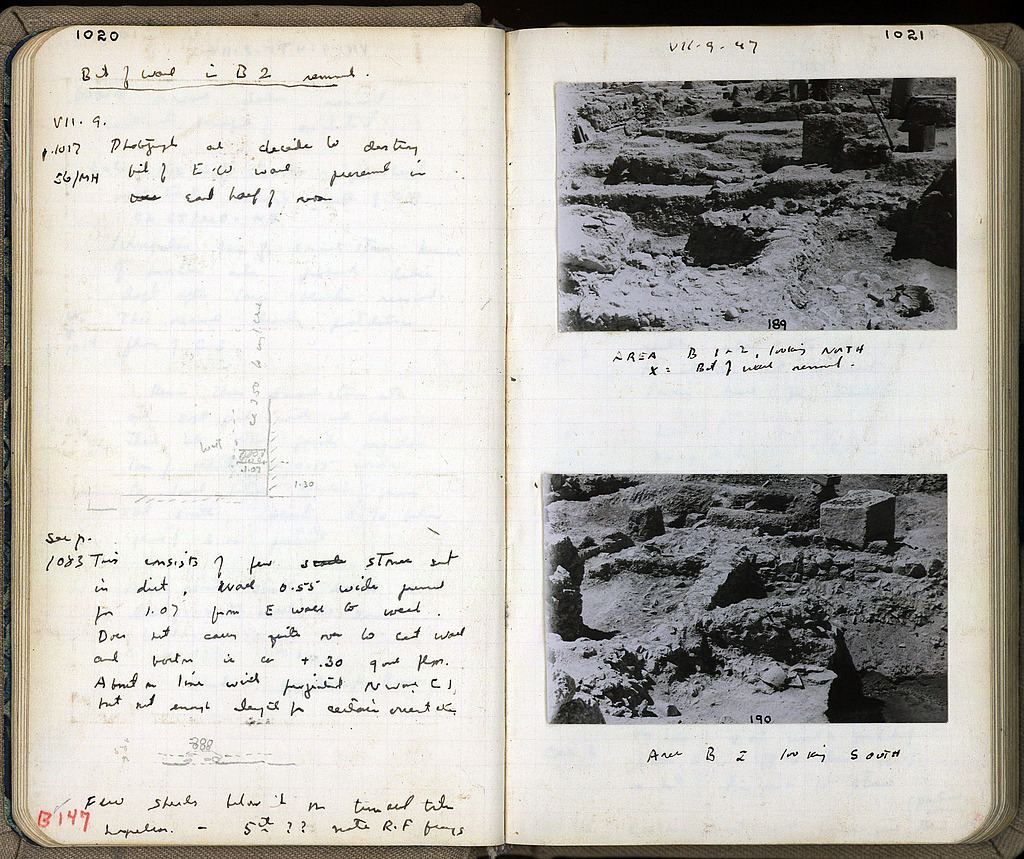 1020
Bit of wall in B 2 removed.
VII. 9.
p.1017 Photograph and decide to destroy
56/MH bit of E-W wall preserved in
east half of room
wall
1.07
1.30
See p.
1083 This consists of few stones set
in dirt, wall 0.55 wide preserved
for 1.07 from E wall to west.
Does not carry quite over to east wall
and bottom is ca +.30 floor.
About on line with projected N wall C 1,
but not enough length for certain orientation.
Few sherds below it
B 147
5th ?? note R.F frags
VII-9-47
1021
189
AREA B 1-2, looking NORTH
X = Bit of wall removed.
190
Area B 2 looking SOUTH